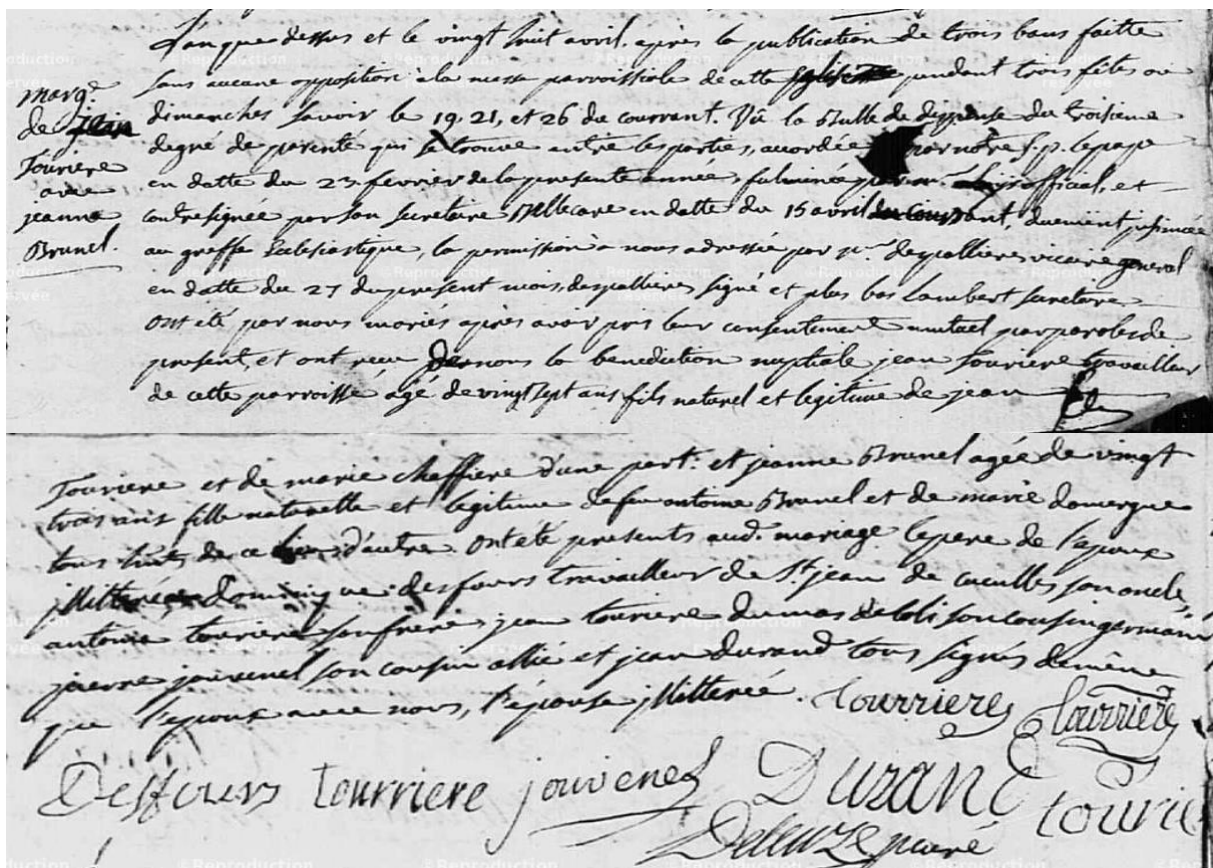 L'an que dessus et le vingt huit avril. après la publication de trois bans faitte
marg.e
de jean
Touriere
avec
jeanne
Brunel.
sans aucune opposition à la messe parroissiale de cette pendant trois fêtes ou
dimanches savoir le 19, 21, et 26 du courrant. Vû la Bulle de dispense du troisieme
degré de parenté qui se trouve entre les parties, accordée par notre S. p. le pape
en datte du 23. fevrier de la presente année, fulminée par official, et
contresignée par son secretaire Bellecare en datte du 15 avril duement insinuée
au greffe Eclesiastique, la permission à nous adressée par mr. despallieres vicaire general
en datte du 27 du present mois, despallieres signé et plus bas Lambert secretaire
ont été par nous mariés apres avoir pris leur consentement mutuel par paroles de
present, et ont recu de nous la benediction nuptiale jean Touriere travailleur
de cette parroisse agé de vingt sept ans fils naturel et legitime de jean
Touriere et de marie chaffiere d'une part. et jeanne Brunel agée de vingt
trois ans fille naturelle et legitime de feu antoine Brunel et de marie domergue
tous de ce lieu d'autre. ont été presents aud. mariage le pere de l'epoux
illitteré, Dominique desfours travailleur de St. jean de cuculles son oncle,
antoine touriere son frere, jean touriere du mas de coli son cousin germain
pierre jouvenel son cousin allié et jean durand tous signés de même
que l'epoux avec nous, l'épouse illitterée. Tourriere Tourriere
Desfours Tourriere jouvenel Durand touriere
Deleuze prieuré